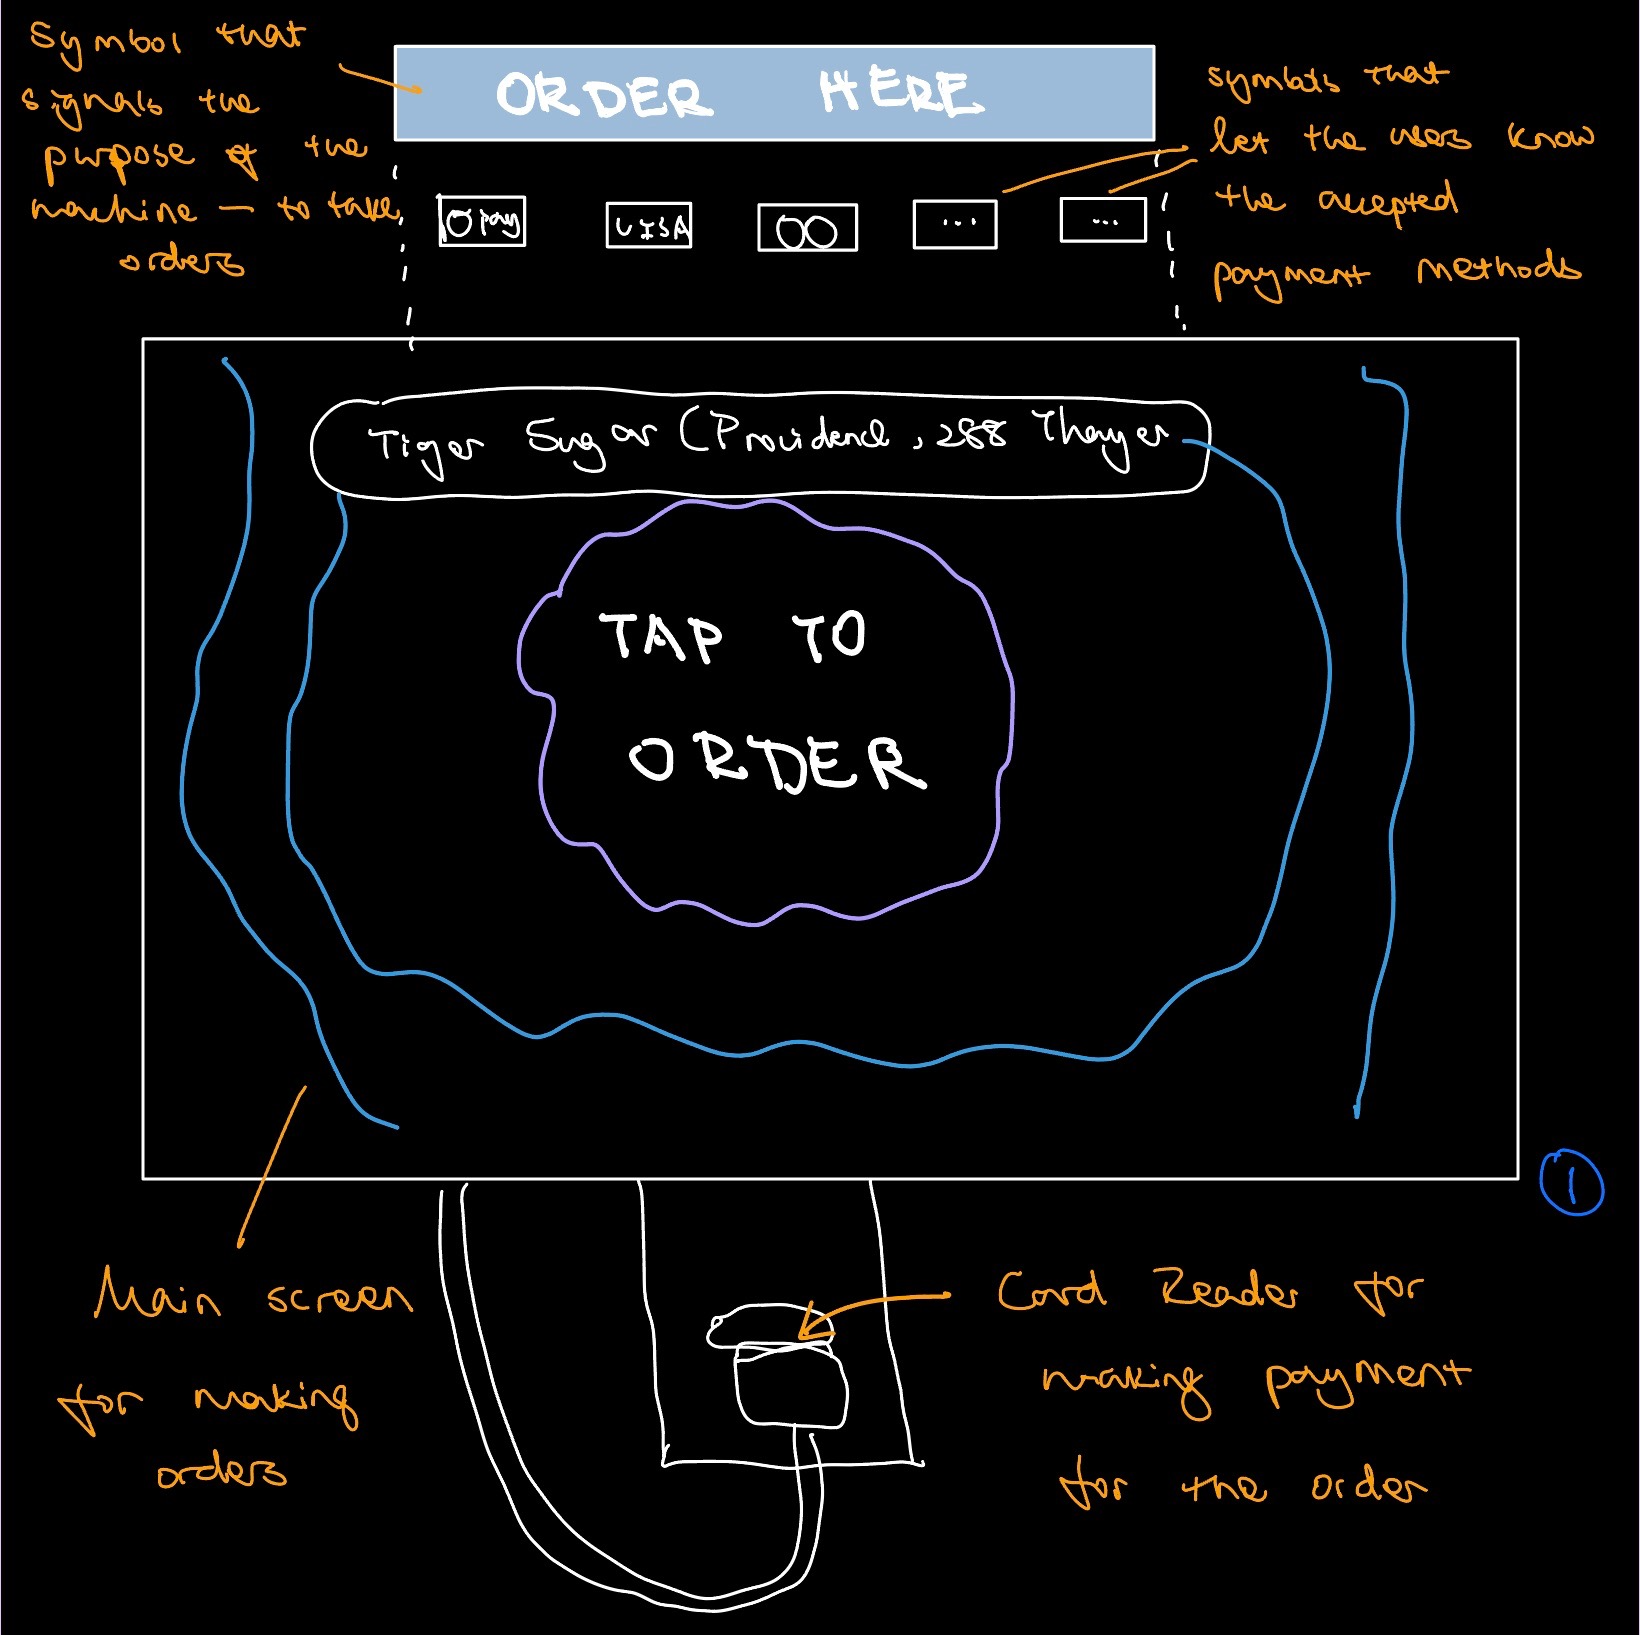 Symbol that
signals the
purpose of the
machine — to take
orders
ORDER HERE
symbols that
let the users know
the accepted
payment methods
Opay
VISA
...
...
Tiger Sugar (Providence, 288 Thayer
TAP TO
ORDER
1
Main screen
for making
orders
Card Reader for
making payment
for the order